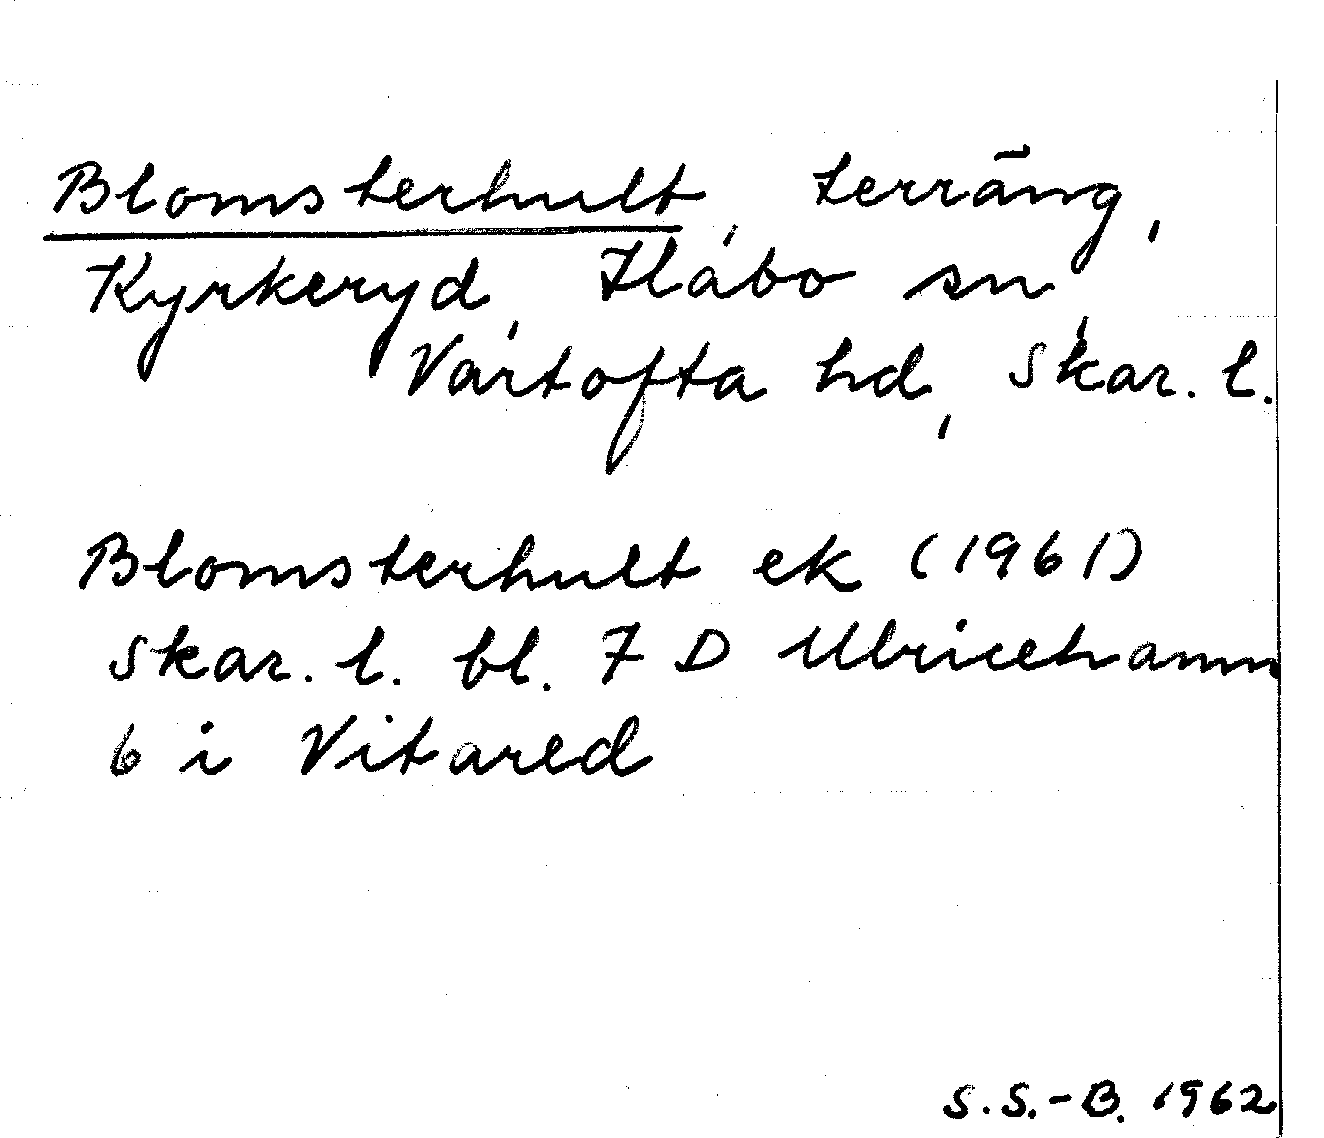 Blomsterhult, terräng,
Kyrkeryd, Håbo sn,
Vartofta hd, Skar. l.
Blomsterhult ek (1961)
Skar. l. bl. 7 D Ulricehamn
6 i Vitared
S.S.-B. 1962